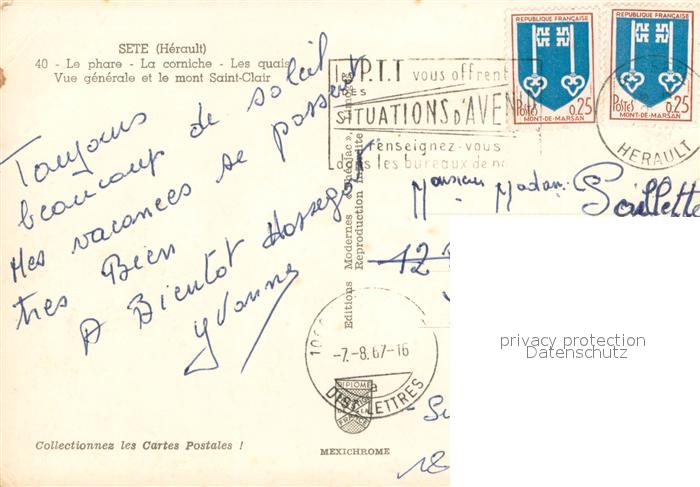 SETE (Hérault)
40 - Le phare - La corniche - Les quais
Vue générale et le mont Saint-Clair
Toujours
beaucoup de soleil
Mes vacances se passent
tres Bien
A Bientot Hossegor
Yvonne
Collectionnez les Cartes Postales !
Editions Modernes
Reproduction Interdite
MEXICHROME
P.T.T vous offrent
DES
SITUATIONS D'AVEN
renseignez-vous
dans les bureaux de
REPUBLIQUE FRANÇAISE
POSTES 0,25
MONT-DE-MARSAN
REPUBLIQUE FRANÇAISE
POSTES 0,25
MONT-DE-MARSAN
HERAULT
Monsieur Madame
12
-7.-8.67-16
DIST LETTRES
DIPLOME
FRANCE
18
privacy protection
Datenschutz